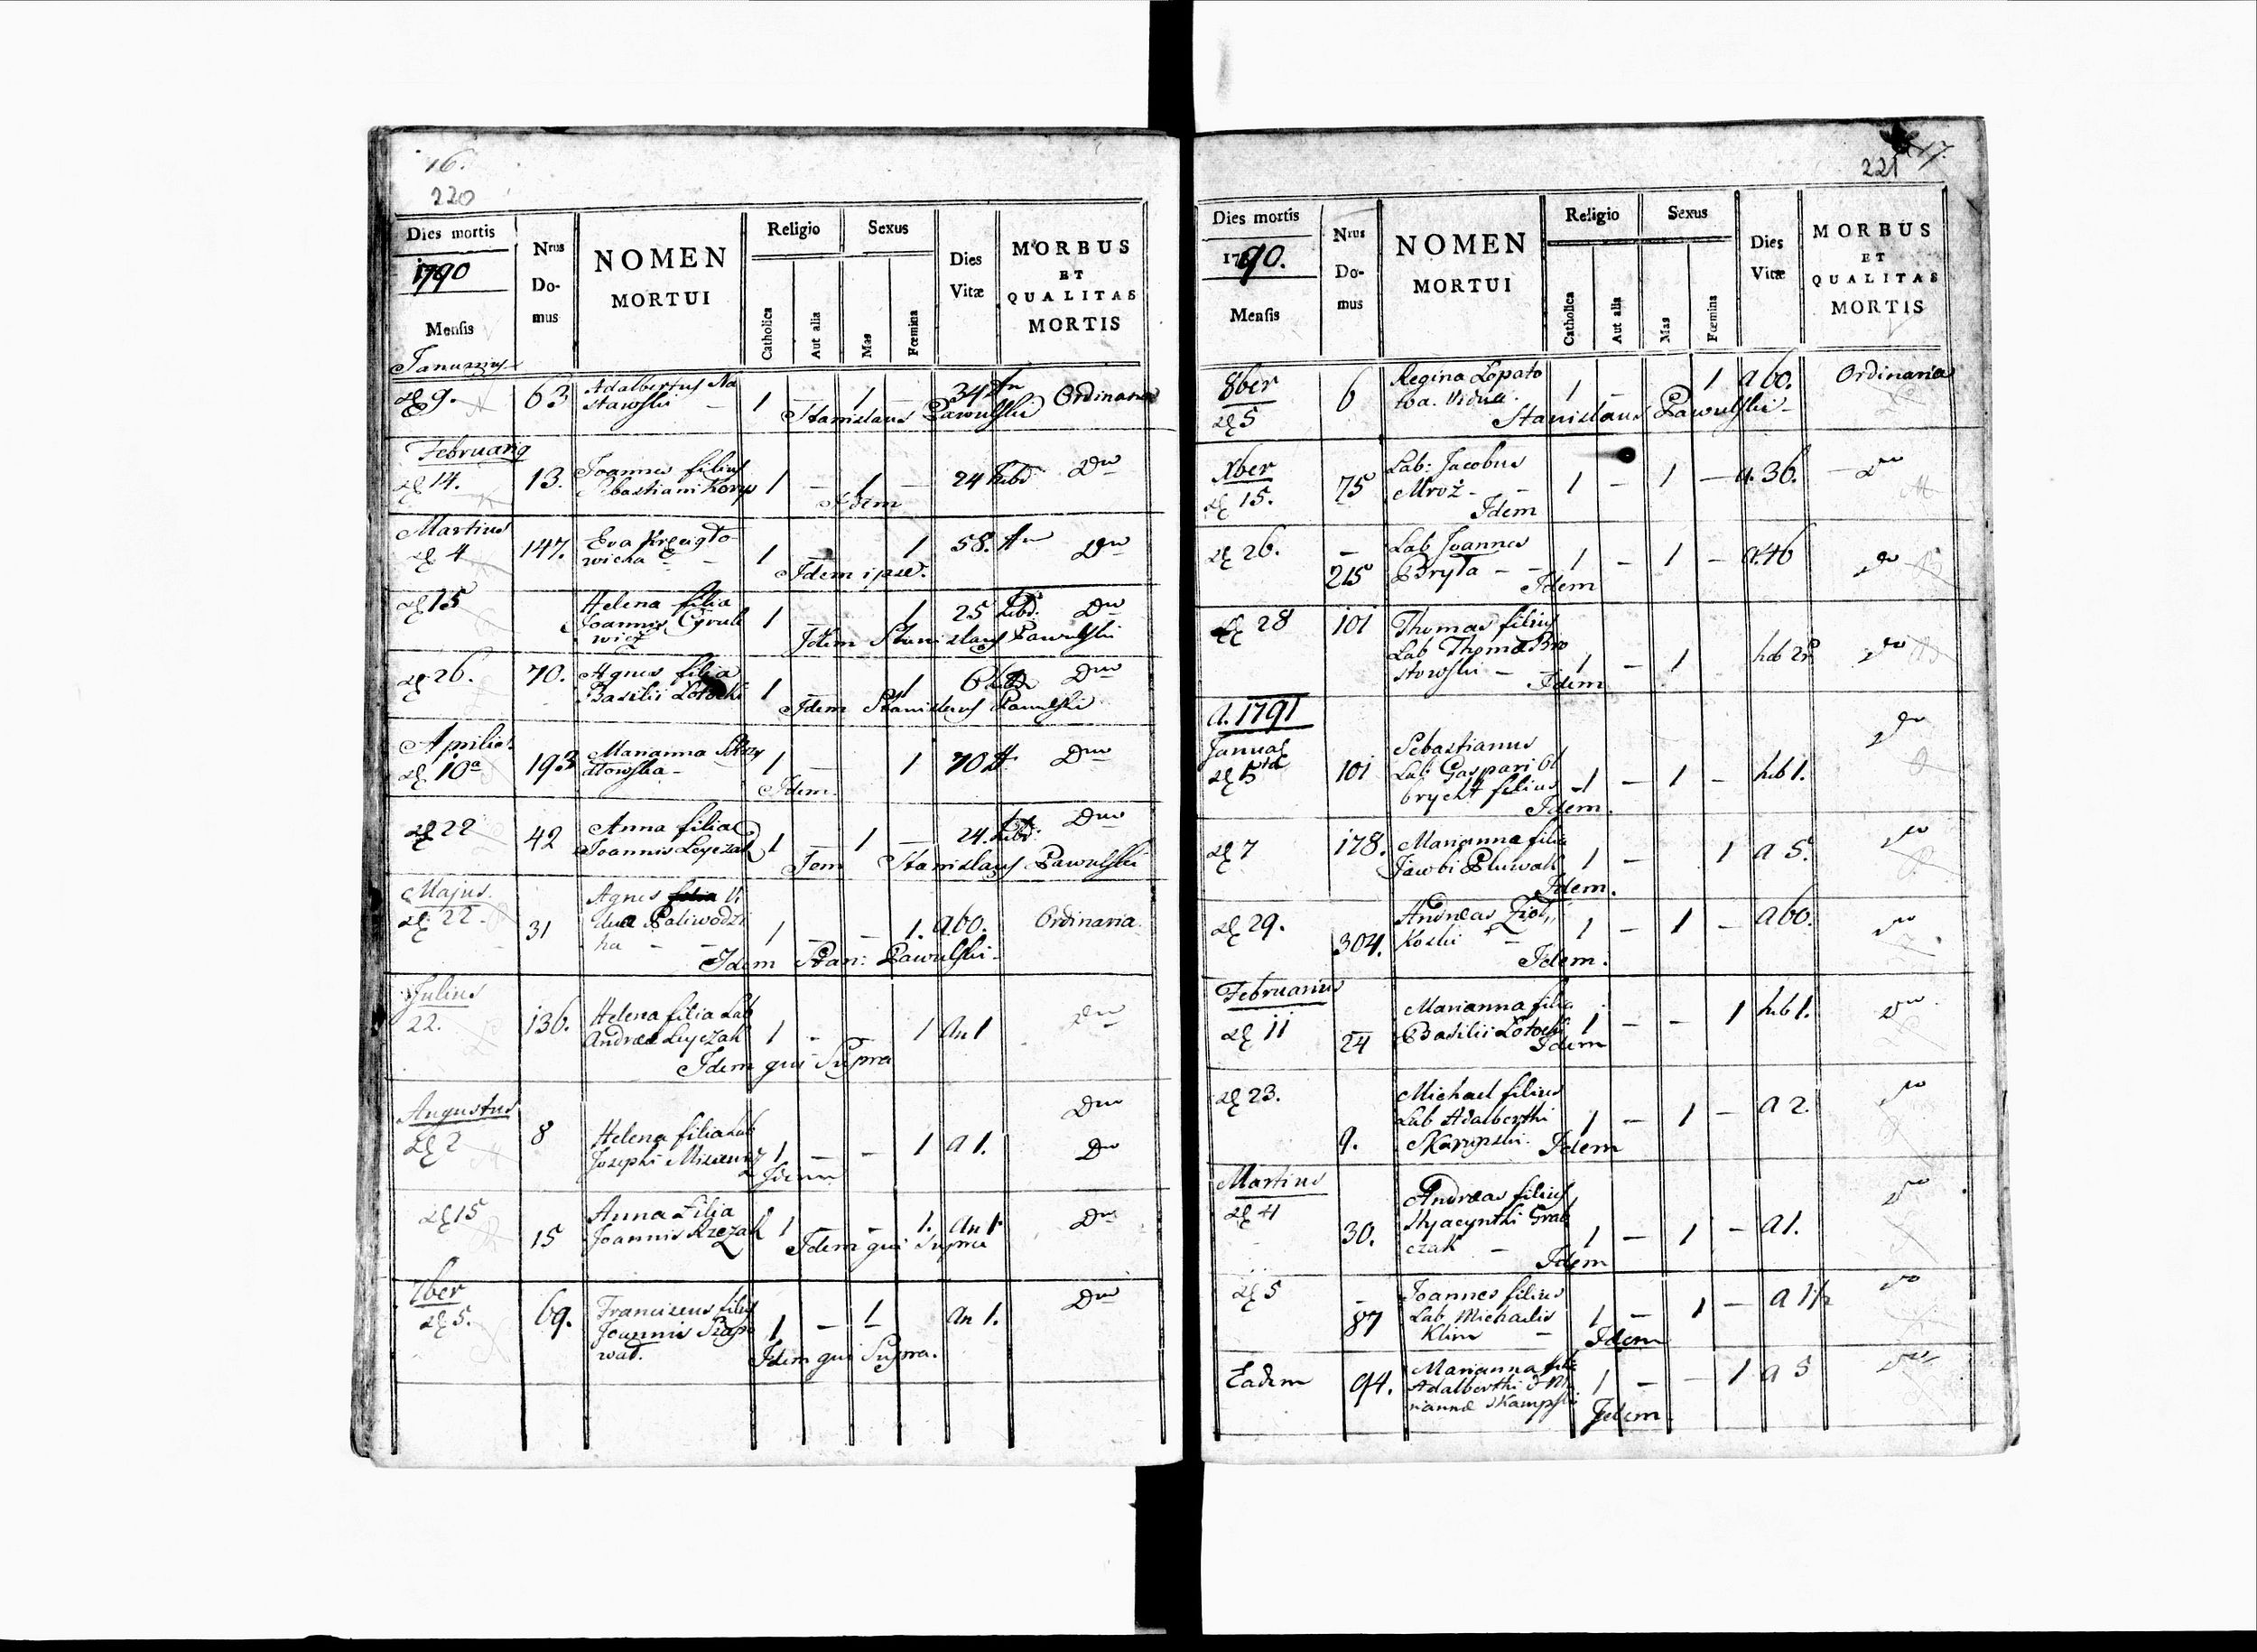 16.
220
Dies mortis
1790
Mensis
Nrus
Do-
mus
NOMEN
MORTUI
Religio
Catholica
Aut alia
Sexus
Mas
Fœmina
Dies
Vitæ
MORBUS
ET
QUALITAS
MORTIS
Januarius
9. 63 Adalbertus Na
stawski 1 — 1 — 34 An Ordinaria
Stanislaus Pawulski
Februariq
14. 13. Joannes filius
Sebastiani 1 — 1 — 24 hebd Dto
Idem
Martius
4 147. Eva
wicka 1 1 58. An Dto
Idem ipse.
15 Helena filia
Joannis Cyrule
wicz 1 — 1 25 hebd. Dto
Idem Stanislaus Pawulski
26. 70. Agnes filia
Basilii Lotocki 1 — 1 6 hebd Dto
Idem Stanislaus Pawulski
Aprilis
10a 193 Marianna
1 — 1 70 A. Dto
Idem.
22 42 Anna filia
Joannis Leyczak 1 — 1 — 24. hebd. Dto
Stanislaus Pawulski
Majus.
22. 31 Agnes filia Vi
dua Paliwodzi
ka — — 1 — — 1. a 60. Ordinaria.
Idem Stan: Pawulski
Julius
22. 136. Helena filia Lab
Andreæ Leyczak 1 - 1 An 1 Dto
Idem qui Supra
Augustus Dto
2 8 Helena filia Lab
Josephi 1 — - 1 a 1. Do
Idem
15 15 Anna Filia
Joannis Rzezak 1 - 1. An 1 Dto
Idem qui Supra
7ber
5. 69. Franciscus filius
Joannis Szapo
wał. 1 — 1 An 1. Dto
Idem qui Supra.
221 17.
Dies mortis
1790.
Mensis
Nrus
Do-
mus
NOMEN
MORTUI
Religio
Catholica
Aut alia
Sexus
Mas
Fœmina
Dies
Vitæ
MORBUS
ET
QUALITAS
MORTIS
8ber
5 6 Regina Lopato
wa. Vidua. 1 — 1 a 60. Ordinaria
Stanislaus Pawulski
Xber
15. 75 Lab: Jacobus
Mroż - 1 — 1 — a. 36. Dto
Idem
26. 215 Lab Joannes
Bryła — 1 — 1 — a. 46 Do
Idem
28 101 Thomas filius
Lab Thomæ Bro
stowski — 1 — 1 heb 28 Do
Idem
A. 1791
Januar
5ta 101 Sebastianus
Lab: Gaspari Ol
brycht filius 1 — 1 — heb 1. Do
Idem.
7 178. Marianna filia
Jacobi Pluwak 1 — 1 a 5. Do
Idem.
29. 304. Andreas Zioł
koski — 1 — 1 — a 60. Do
Idem.
Februarius
11 24 Marianna filia
Basilii Lotocki 1 — — 1 heb 1. Do
Idem
23. 9. Michael filius
Lab Adalberthi
Skarupski. 1 — 1 — a 2. Do
Idem
Martius
4 30. Andreas filius
Hyacynthi Grab
czak — 1 — 1 — a 1. Do
Idem
5 87 Joannes filius
Lab Michaelis
Klim — 1 — 1 — a 1½ Do
Idem
Eadem 94. Marianna filia
Adalberthi & Ma
riannæ Skampski 1 — — 1 a 5 Do
Idem.